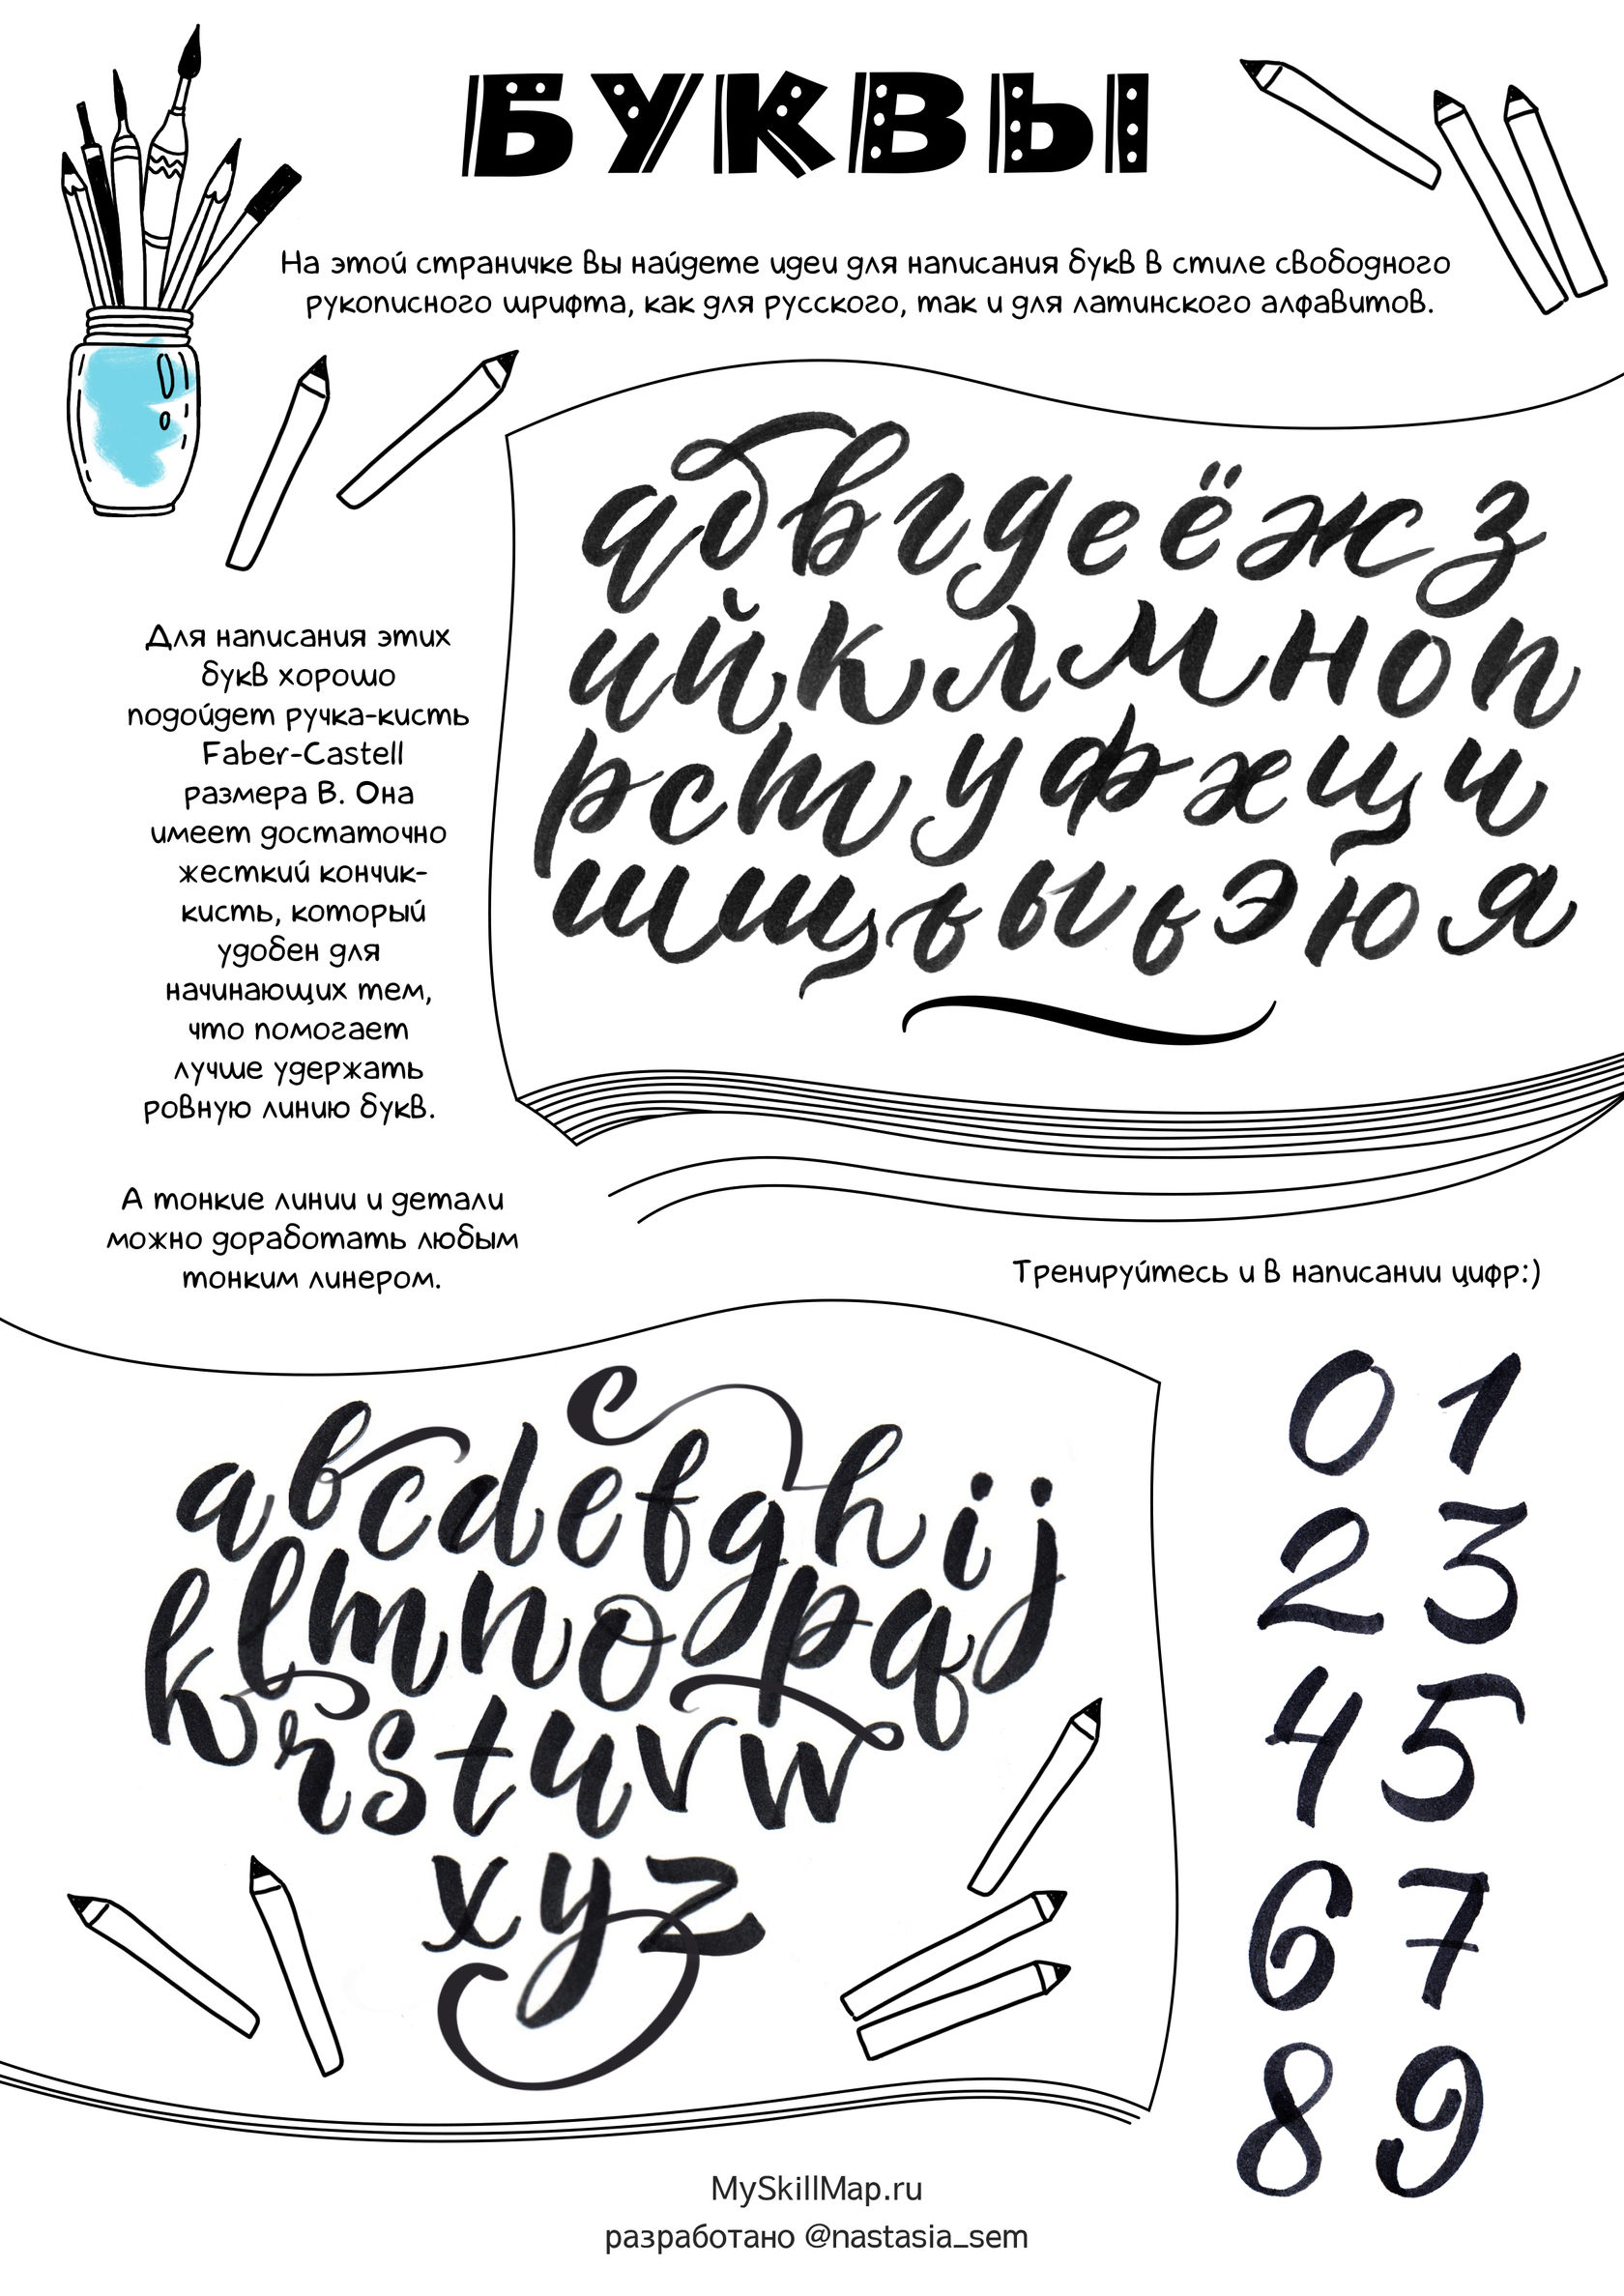 БУКВЫ
На этой страничке вы найдете идеи для написания букв в стиле свободного
рукописного шрифта, как для русского, так и для латинского алфавитов.
а б в г д е ё ж з
и й к л м н о п
р с т у ф х ц ч
ш щ ъ ы ь э ю я
Для написания этих
букв хорошо
подойдет ручка-кисть
Faber-Castell
размера В. Она
имеет достаточно
жесткий кончик-
кисть, который
удобен для
начинающих тем,
что помогает
лучше удержать
ровную линию букв.
А тонкие линии и детали
можно доработать любым
тонким линером.
Тренируйтесь и в написании цифр:)
a b c d e f g h i j
k l m n o p q
r s t u v w
x y z
0 1
2 3
4 5
6 7
8 9
MySkillMap.ru
разработано @nastasia_sem